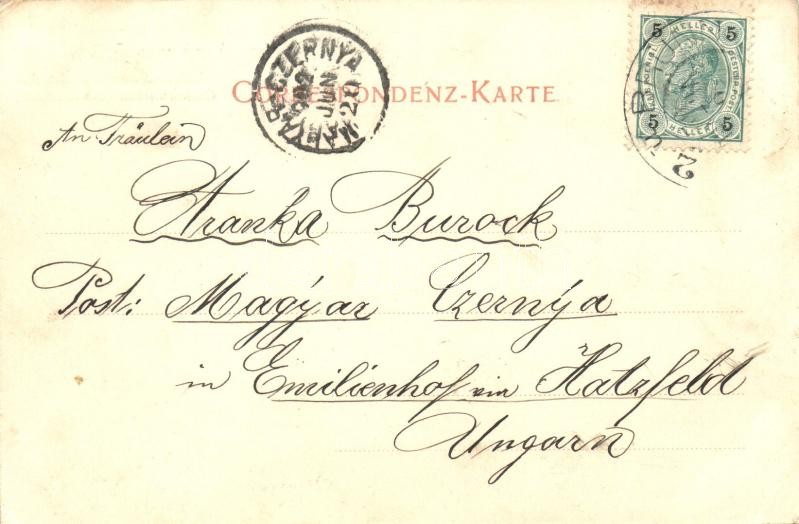 CORRESPONDENZ-KARTE
MAGYAR-CZERNYA
902 JUN 20
5 HELLER 5
5 HELLER 5
An Fräulein
Aranka Burock
Post: Magyar Czernýa
in Emilienhof via Hatzfeld
Ungarn